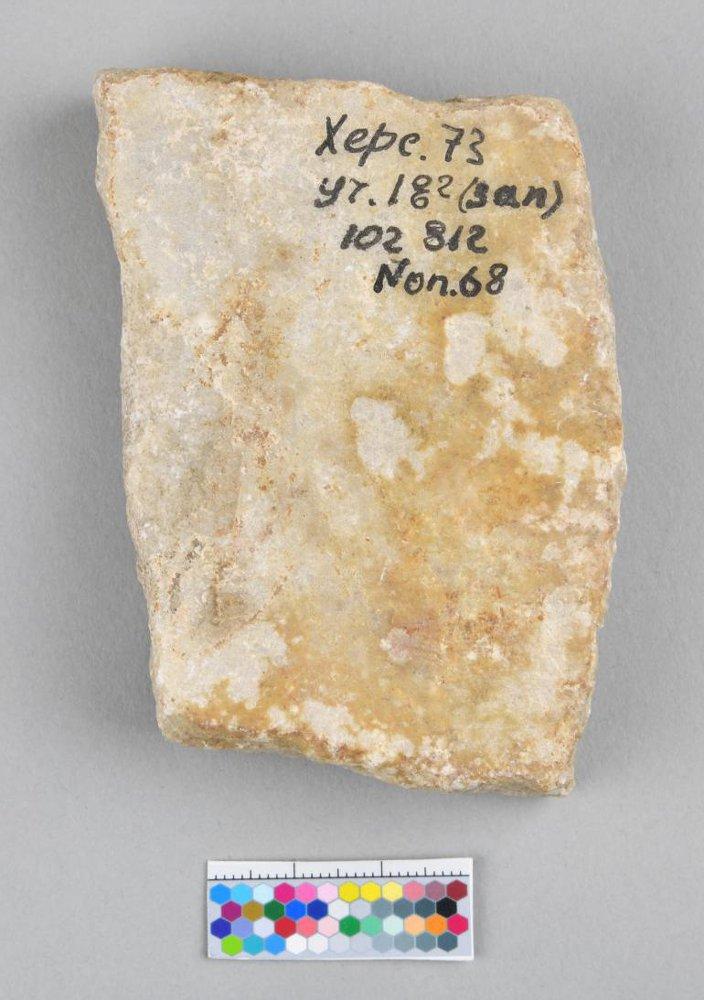 Херс. 73
(зап)
102 812
Пол. 68